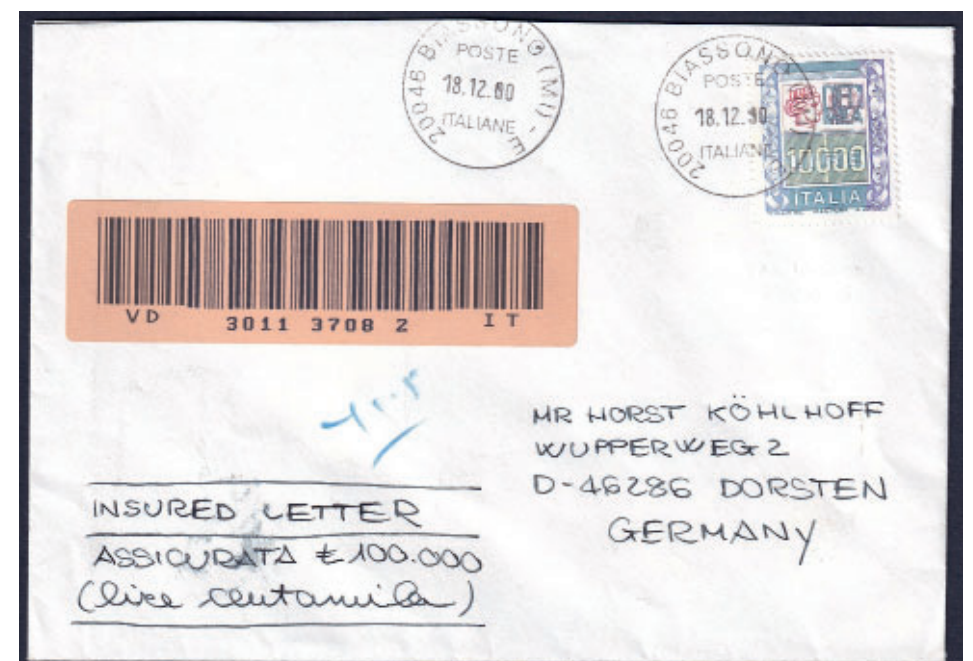 20046 BIASSONO (MI) - E
POSTE
18.12.00
ITALIANE
20046 BIASSONO
POSTE
18.12.00
ITALIANE
10000
ITALIA
VD 3011 3708 2 IT
MR HORST KÖHLHOFF
WUPPERWEG 2
D-46286 DORSTEN
GERMANY
INSURED LETTER
ASSICURATA £ 100.000
(lire centomila)